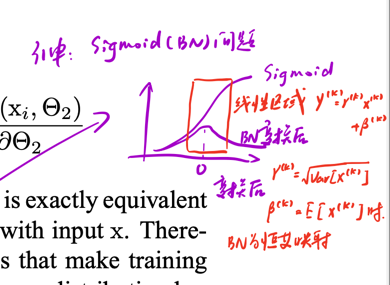 引申: Sigmoid(BN)问题
Sigmoid
(xᵢ, Θ₂)
∂Θ₂
线性区域 y⁽ᵏ⁾=r⁽ᵏ⁾x⁽ᵏ⁾
+β⁽ᵏ⁾
BN变换后
0
变换后 r⁽ᵏ⁾=√Var[x⁽ᵏ⁾]
β⁽ᵏ⁾=E[x⁽ᵏ⁾]时.
BN为恒等映射
is exactly equivalent
with input x. There-
s that make training